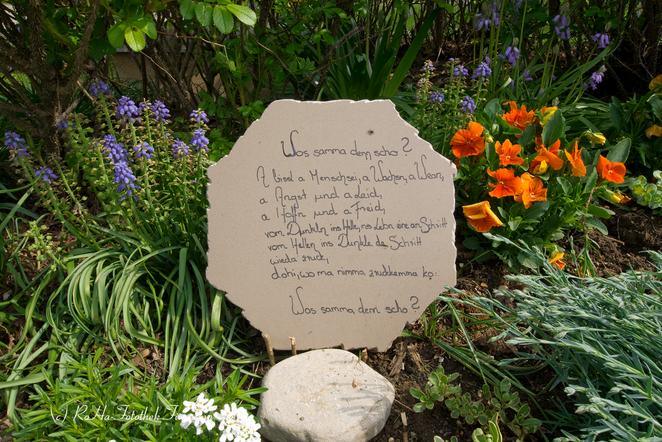 Wos samma denn scho?
A bissl a Menschsei, a Wachsn, a Wearn,
a Angst und a Leid,
a Hoffn und a Freid,
vom Dunkeln ins Helle, ins Lebn eine an Schritt
vom Hellen ins Dunkle da Schritt
wieda zruck,
dohi, wo ma nimma zruckkemma ko.
Wos samma denn scho?
RaHa-Fotothek